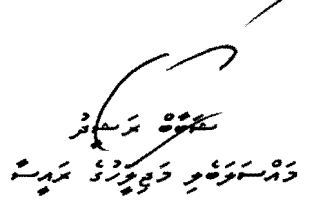 ޝަބާބް ރަޝީދު
މައްސަލަބެލި މަޖިލީހުގެ ރައީސާ